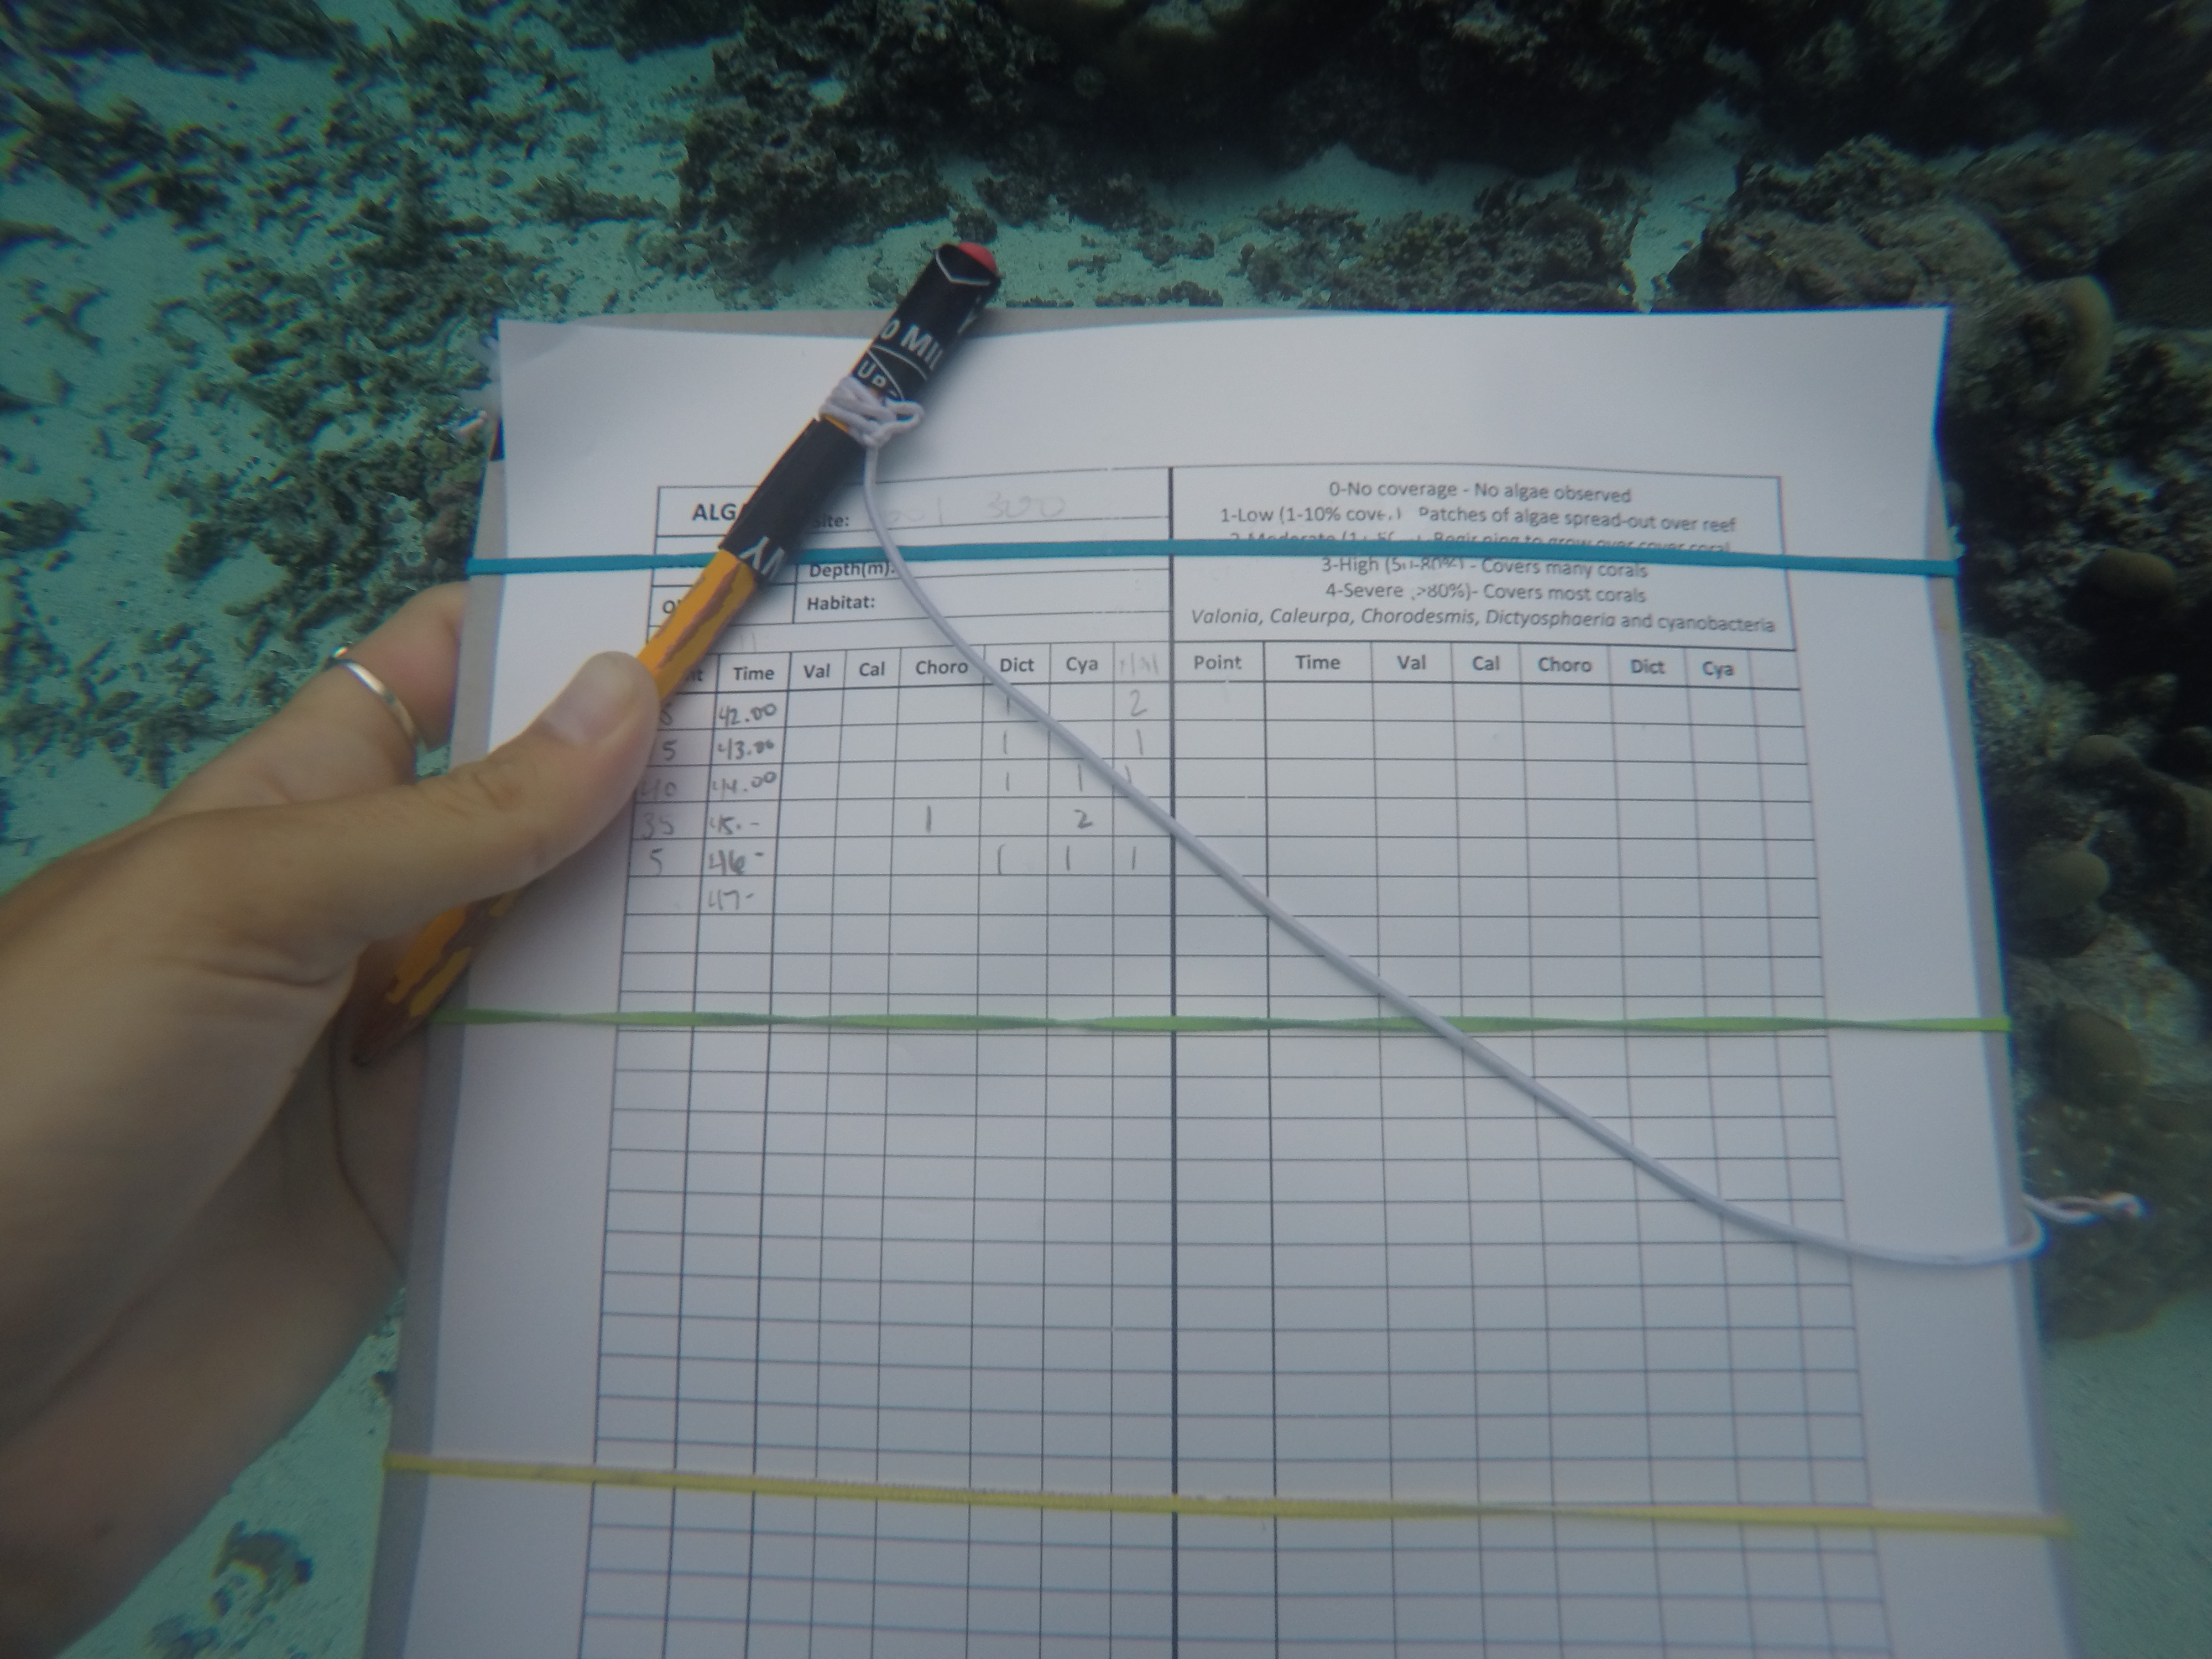 0 MIL
ALG
Site: 300
Depth(m):
Habitat:
0-No coverage - No algae observed
1-Low (1-10% cove Patches of algae spread-out over reef
3-High (50-80%) - Covers many corals
4-Severe >80%)- Covers most corals
Valonia, Caleurpa, Chorodesmis, Dictyosphaeria and cyanobacteria
Time Val Cal Choro Dict Cya Point Time Val Cal Choro Dict Cya
42.00 1 2
5 43.00 1 1
40 44.00 1 1 1
35 45.- 1 2
5 46- 1 1 1
47-